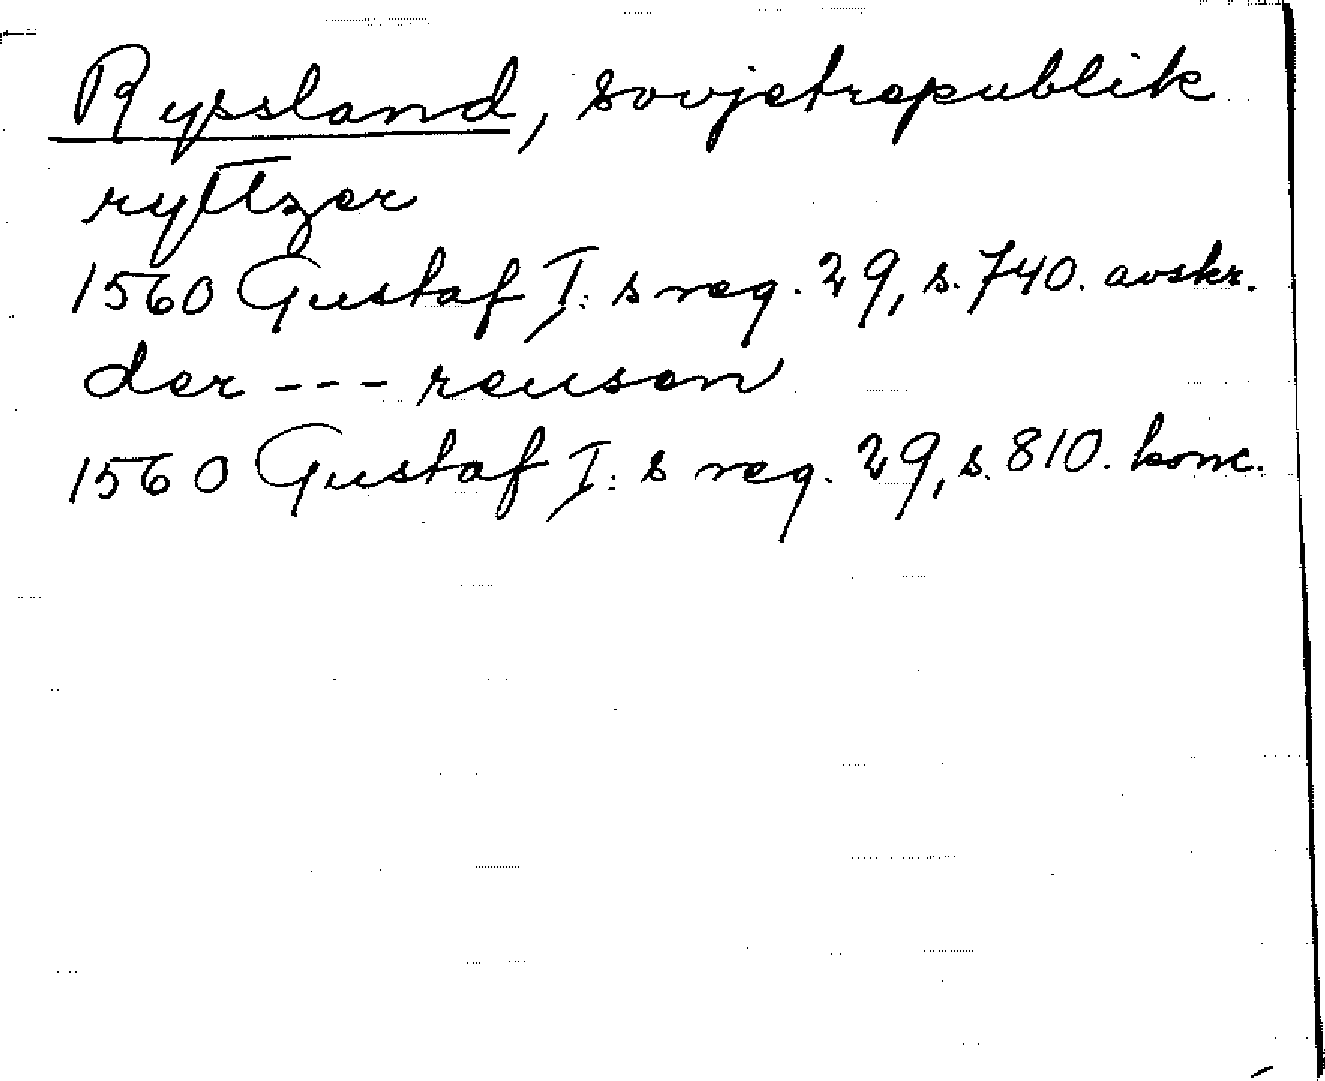 Ryssland, sovjetrepublik
ryttzer
1560 Gustaf I:s reg. 29, s. 740. avskr.
der --- reusen
1560 Gustaf I:s reg. 29, s. 810. konc.